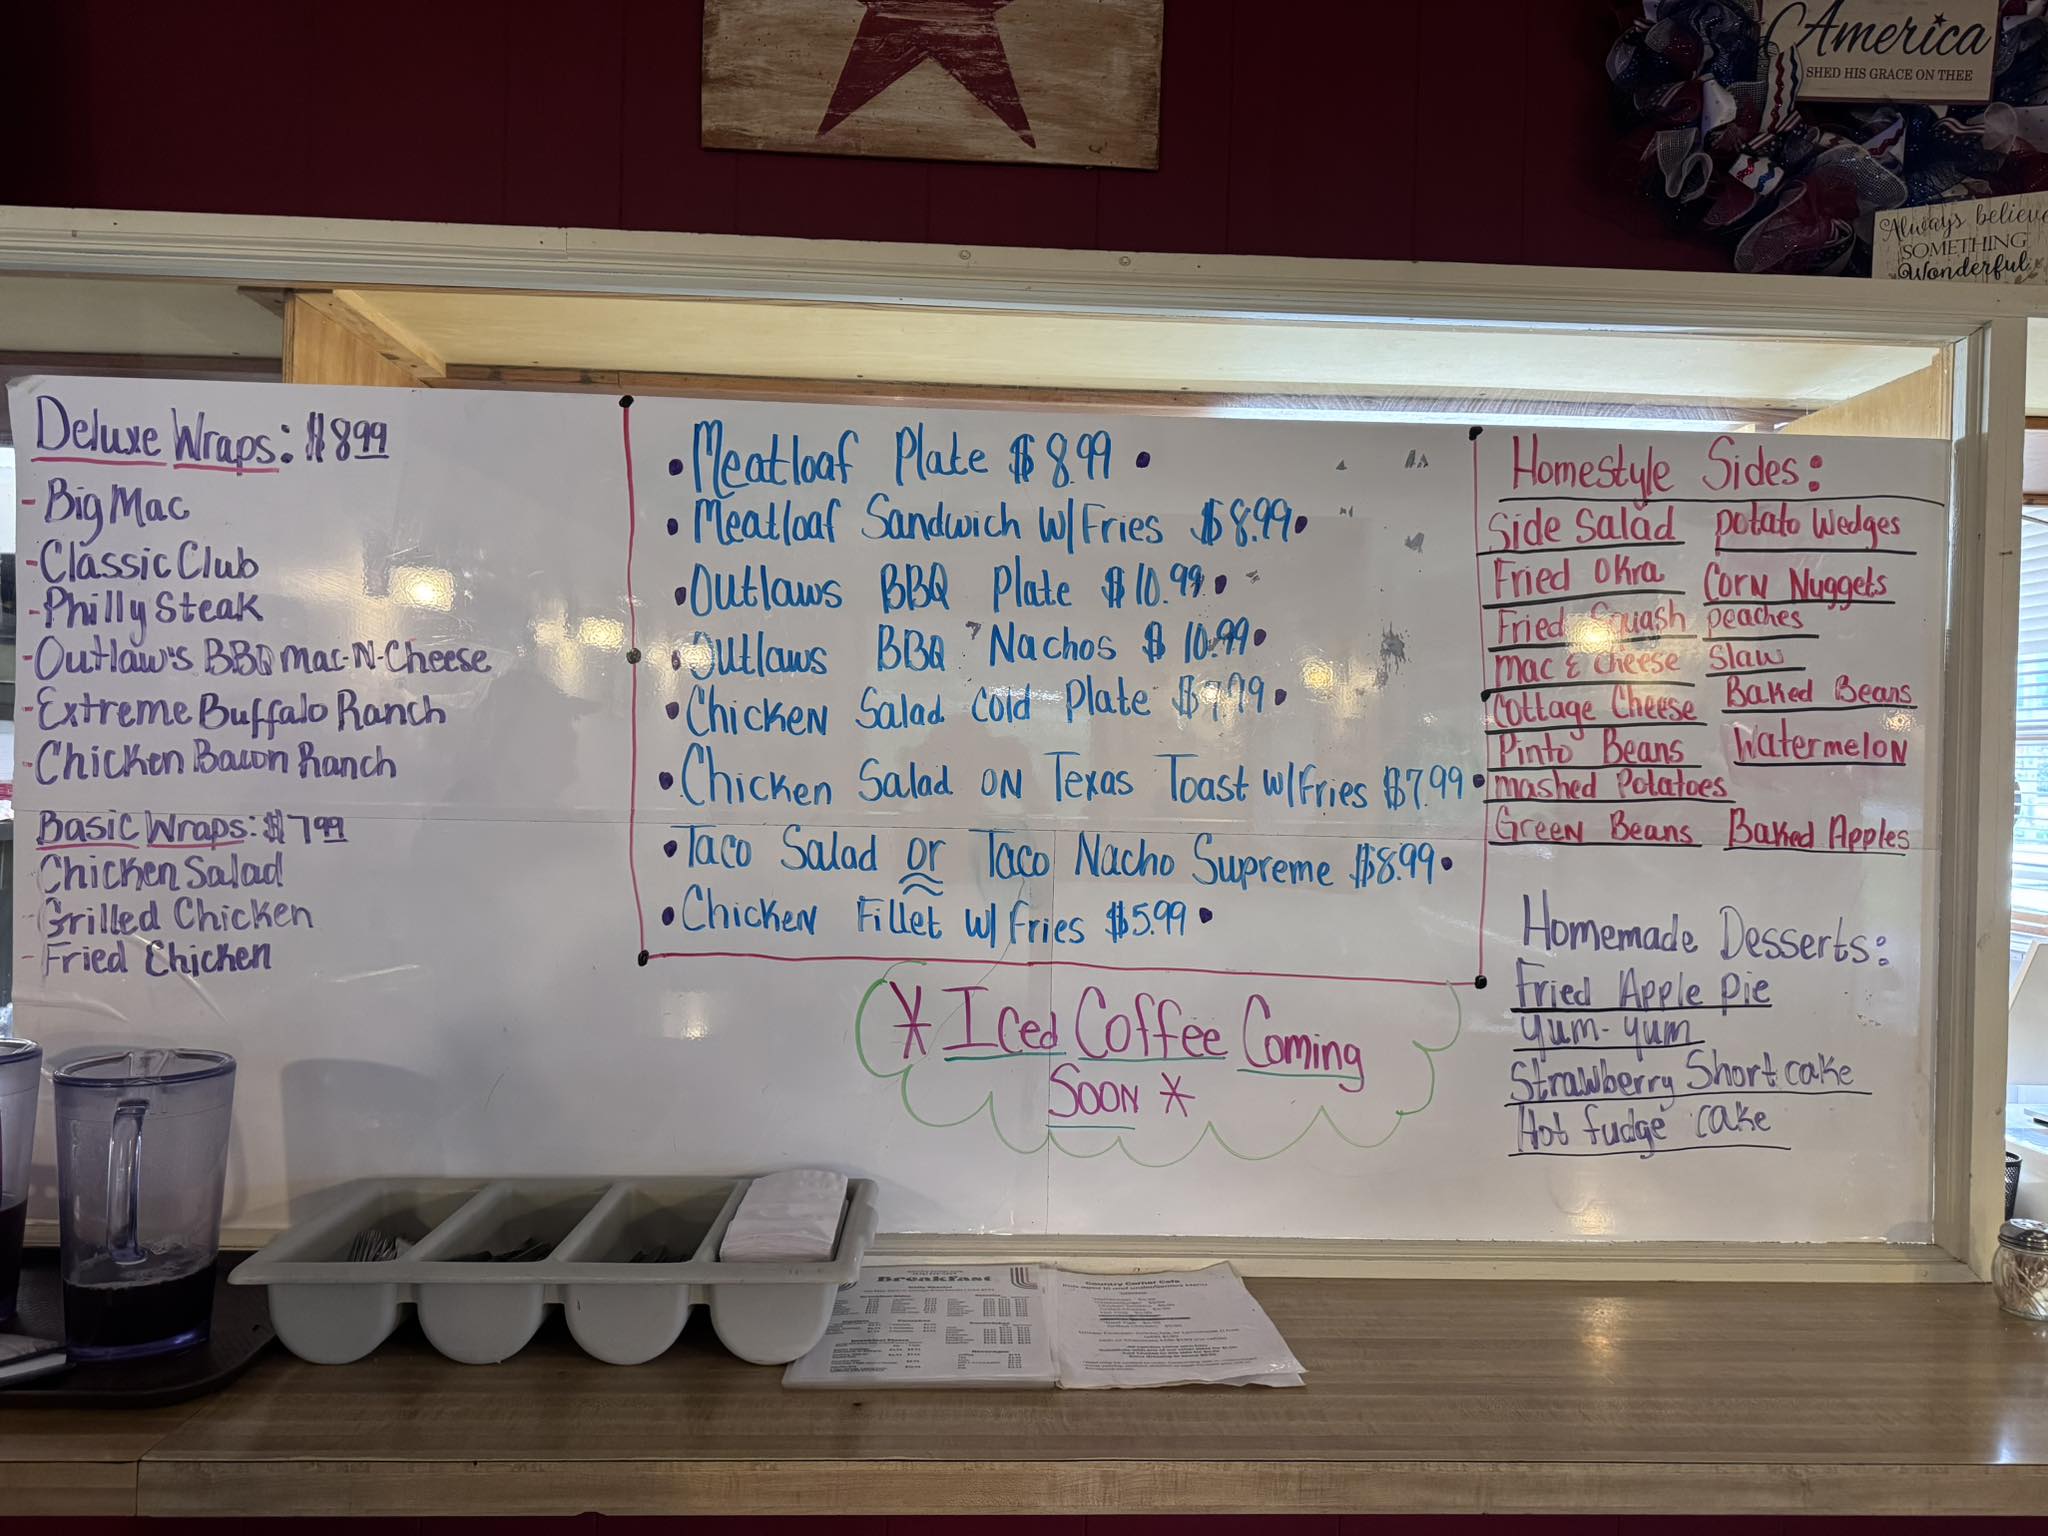 America
SHED HIS GRACE ON THEE
Always believe
SOMETHING
Wonderful
Deluxe Wraps: $8.99
- Big Mac
- Classic Club
- Philly Steak
- Outlaw's BBQ Mac-N-Cheese
- Extreme Buffalo Ranch
- Chicken Bacon Ranch
Basic Wraps: $7.99
Chicken Salad
- Grilled Chicken
- Fried Chicken
• Meatloaf Plate $8.99 •
• Meatloaf Sandwich w/Fries $8.99 •
• Outlaws BBQ Plate $10.99 •
• Outlaws BBQ Nachos $10.99 •
• Chicken Salad Cold Plate •
• Chicken Salad on Texas Toast w/Fries $7.99 •
• Taco Salad or Taco Nacho Supreme $8.99 •
• Chicken Fillet w/ Fries $5.99 •
* Iced Coffee Coming
Soon *
Homestyle Sides:
Side Salad Potato Wedges
Fried Okra Corn Nuggets
Fried Squash Peaches
Mac & Cheese Slaw
Cottage Cheese Baked Beans
Pinto Beans Watermelon
Mashed Potatoes
Green Beans Baked Apples
Homemade Desserts:
Fried Apple Pie
Yum-Yum
Strawberry Short cake
Hot fudge cake
Breakfast
Country Corner Cafe